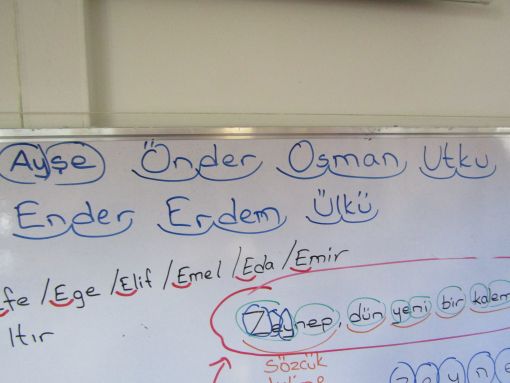 Ayşe Önder Osman Utku
Ender Erdem Ülkü
/Ege /Elif /Emel /Eda /Emir
Itır
Zeynep, dün yeni bir kalem
sözcük